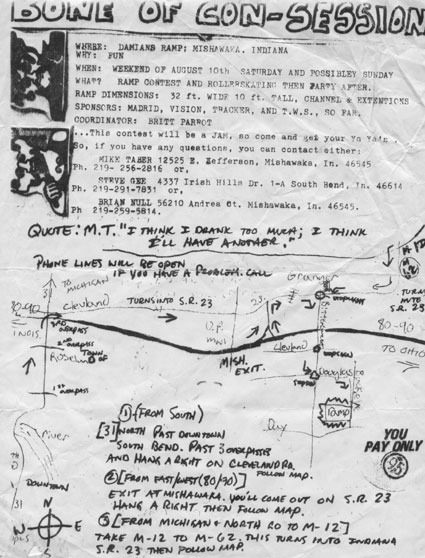 BONE OF CON-SESSION
WHERE: DAMIANS RAMP: MISHAWAKA, INDIANA
WHY: FUN
WHEN: WEEKEND OF AUGUST 10th SATURDAY AND POSSIBLEY SUNDAY
WHAT? RAMP CONTEST AND ROLLERSKATING THEN PARTY AFTER.
RAMP DIMENSIONS: 32 ft. WIDE 10 ft. TALL, CHANNEL & EXTENTIONS
SPONSORS: MADRID, VISION, TRACKER, AND T.W.S., SO FAR.
COORDINATOR: BRITT PARROT
...This contest will be a JAM, so come and get your Yo Ya's
So, if you have any questions, you can contact either:
MIKE TABER 12525 E. Jefferson, Mishawaka, In. 46545
Ph. 219- 256-2816 or,
STEVE GEE 4337 Irish Hills Dr. 1-A South Bend, In. 46614
Ph. 219-291-7831 or,
BRIAN NULL 56210 Andrea Ct. Mishawaka, In. 46545.
Ph 219-259-5814.
QUOTE: M.T. "I THINK I DRANK TOO MUCH; I THINK
I'LL HAVE ANOTHER."
PHONE LINES WILL BE OPEN
IF YOU HAVE A PROBLEM. CALL
TO MICHIGAN
Granger
80-90
Cleveland
TURNS INTO S.R. 23
23
TURNS
INTO
S.R. 23
3RD OVERPASS
80-90
2nd OVERPASS
MISH.
EXIT.
Cleveland
TO OHIO
TOWN OF
Douglas
1ST OVERPASS
RAMP
River
DOWNTOWN
31
N
W
E
S
YOU
PAY ONLY
95
① (FROM SOUTH)
[31] NORTH PAST DOWNTOWN
SOUTH BEND. PAST 3 OVERPASSES
AND HANG A RIGHT ON CLEVELAND RD.
FOLLOW MAP.
② [FROM EAST/WEST (80/90)]
EXIT AT MISHAWAKA. YOU'LL COME OUT ON S.R. 23
HANG A RIGHT THEN FOLLOW MAP.
③ [FROM MICHIGAN & NORTH RD TO M-12]
TAKE M-12 TO M-62. THIS TURNS INTO INDIANA
S.R. 23 THEN FOLLOW MAP.